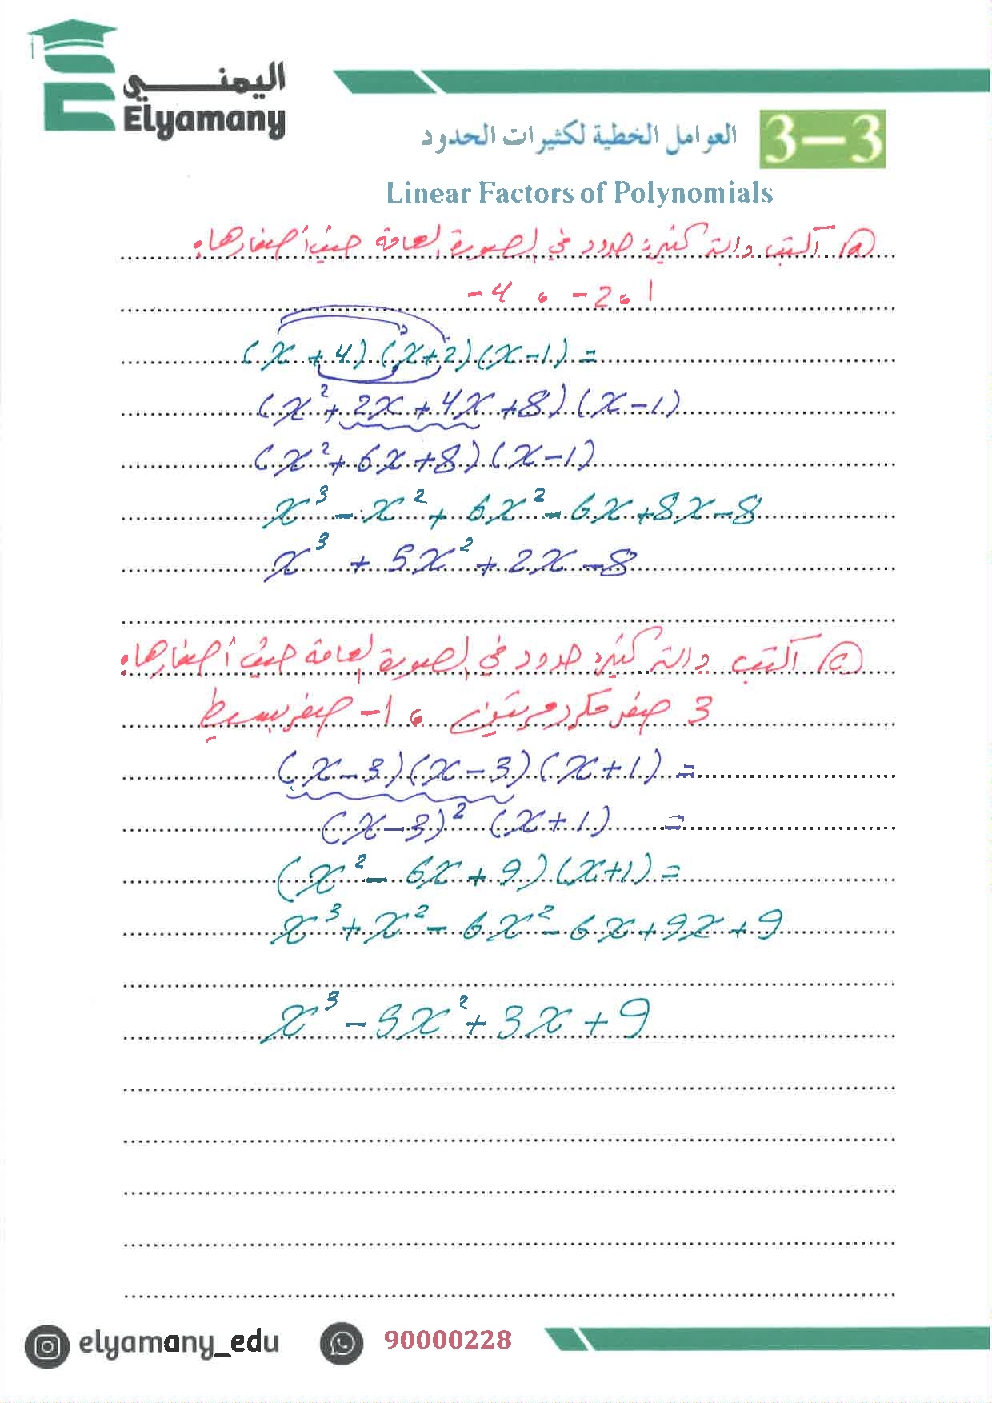 اليمني
Elyamany
3-3 العوامل الخطية لكثيرات الحدود
Linear Factors of Polynomials
(a اكتب دالة كثيرة حدود في الصورة العامة حيث أصفارها:
-4 ، -2 ، 1
(x + 4) (x+2) (x-1) =
(x² + 2x + 4x + 8) (x-1)
(x² + 6x + 8) (x-1)
x³ - x² + 6x² - 6x + 8x - 8
x³ + 5x² + 2x - 8
(c اكتب دالة كثيرة حدود في الصورة العامة حيث أصفارها:
3 صفر مكرر مرتين ، -1 صفر بسيط
(x-3) (x-3) (x+1) =
(x-3)² (x+1) =
(x² - 6x + 9) (x+1) =
x³ + x² - 6x² - 6x + 9x + 9
x³ - 5x² + 3x + 9
elyamany_edu 90000228